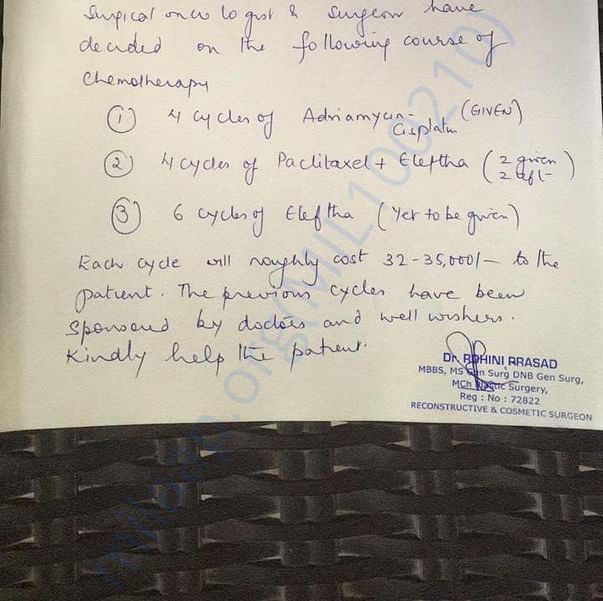 Surgical onco logist & Surgeon have
decided on the following course of
Chemotherapy
① 4 cycles of Adriamycin- (GIVEN)
Cisplatin
② 4 cycles of Paclitaxel + Eleftha (2 given
2 left)
③ 6 cycles of Eleftha (Yet to be given)
Each cycle will roughly cost 32-35,000/- to the
patient. The previous cycles have been
Sponsored by doctors and well wishers.
Kindly help the patient.
Dr. ROHINI PRASAD
MBBS, MS Gen Surg DNB Gen Surg,
MCh Plastic Surgery,
Reg : No : 72822
RECONSTRUCTIVE & COSMETIC SURGEON
milaap.org(MIL100210)